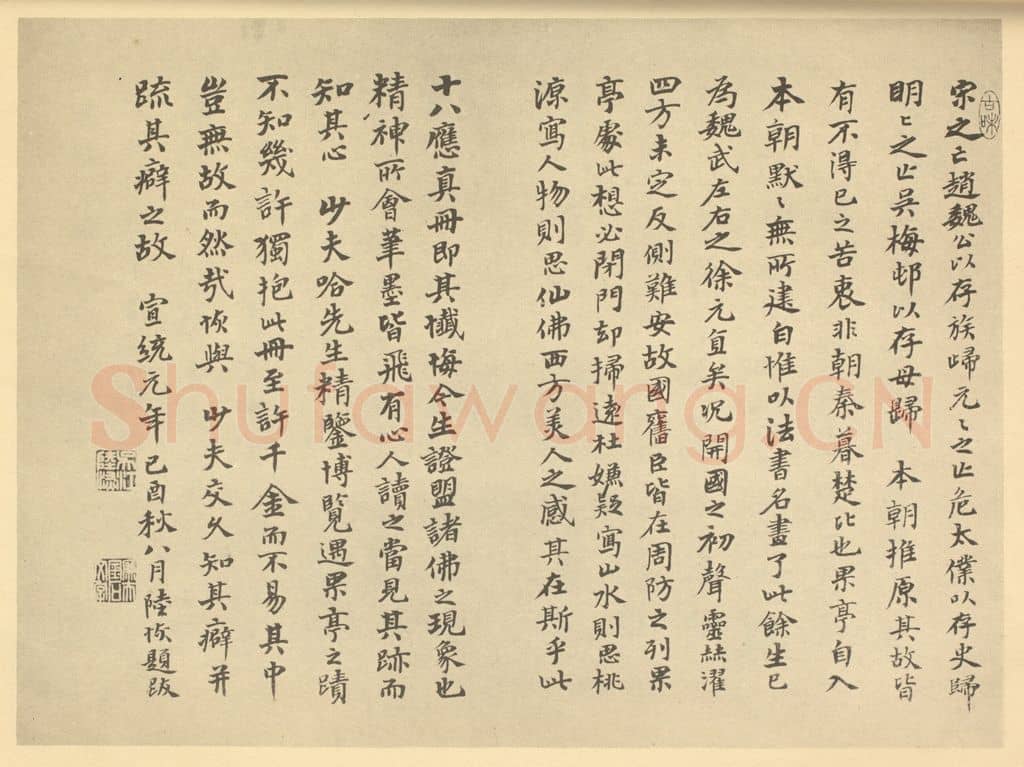 古味
宋之亡趙魏公以存族歸元〻之亡危太僕以存史歸
明〻之亡吳梅邨以存母歸 本朝推原其故皆
有不得已之苦衷非朝秦暮楚比也果亭自入
本朝默〻無所建白惟以法書名畫了此餘生已
為魏武左右之徐元直矣況開國之初聲靈赫濯
四方未定反側難安故國舊臣皆在周防之列果
亭處此想必閉門却掃遠杜嫌疑寫山水則思桃
源寫人物則思仙佛西方美人之感其在斯乎此
十八應真冊即其懺悔今生證盟諸佛之現象也
精神所會筆墨皆飛有心人讀之當見其跡而
知其心 少夫哈先生精鑒博覽遇果亭之蹟
不知幾許獨抱此冊至許千金而不易其中
豈無故而然哉恢與 少夫交久知其癖并
疏其癖之故 宣統元年己酉秋八月陸恢題跋
Shufawang.CN